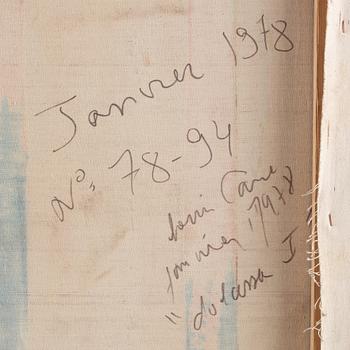 Janvier 1978
N°. 78-94
Louis Cane
janvier 1978
"dolassa I"